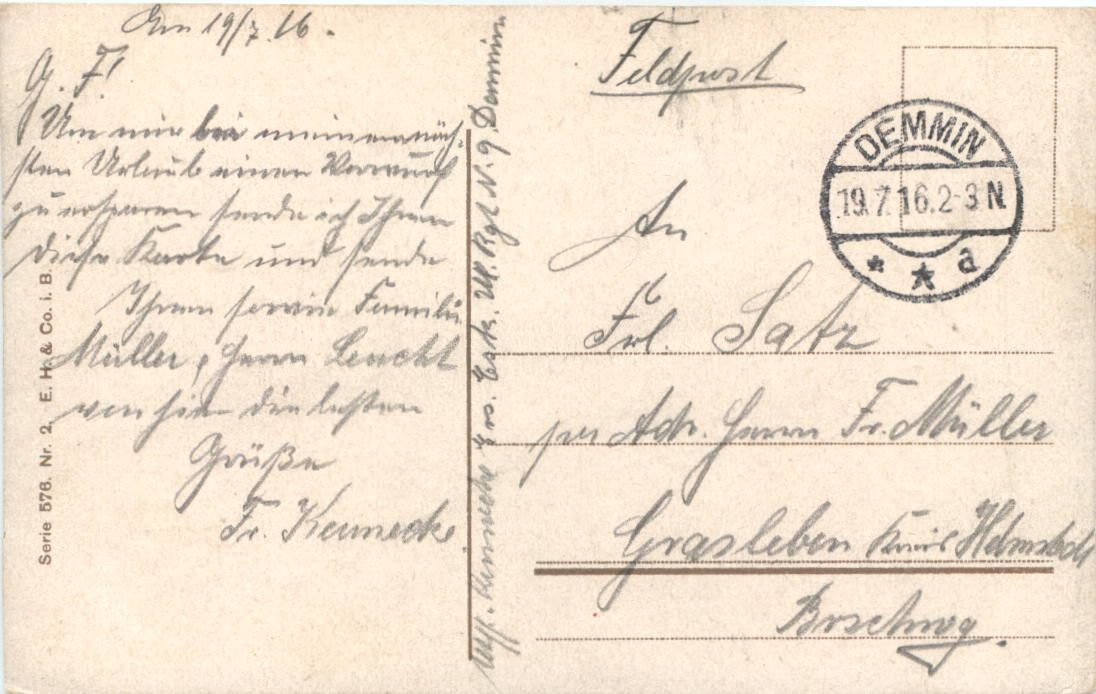 Am 19/7.16.
G. F!
Um mir bei meinem näch-
sten Urlaub einen Vorwurf
zu ersparen sende ich Ihnen
diese Karte und sende
Ihnen sowie Familie
Müller, Herrn Leucht
von hier die besten
Grüße
Fr. Kennecke.
Serie 576. Nr. 2. E. H. & Co. i. B.
Uff. Kennecke Ers. Esk. Ul. Rgt N. 9 Demmin
Feldpost
DEMMIN
19.7.16.2-3 N
* * a
An
Frl. Satz
per Adr. Herrn Fr. Müller
Grasleben Kreis Helmstedt
Brschwg.